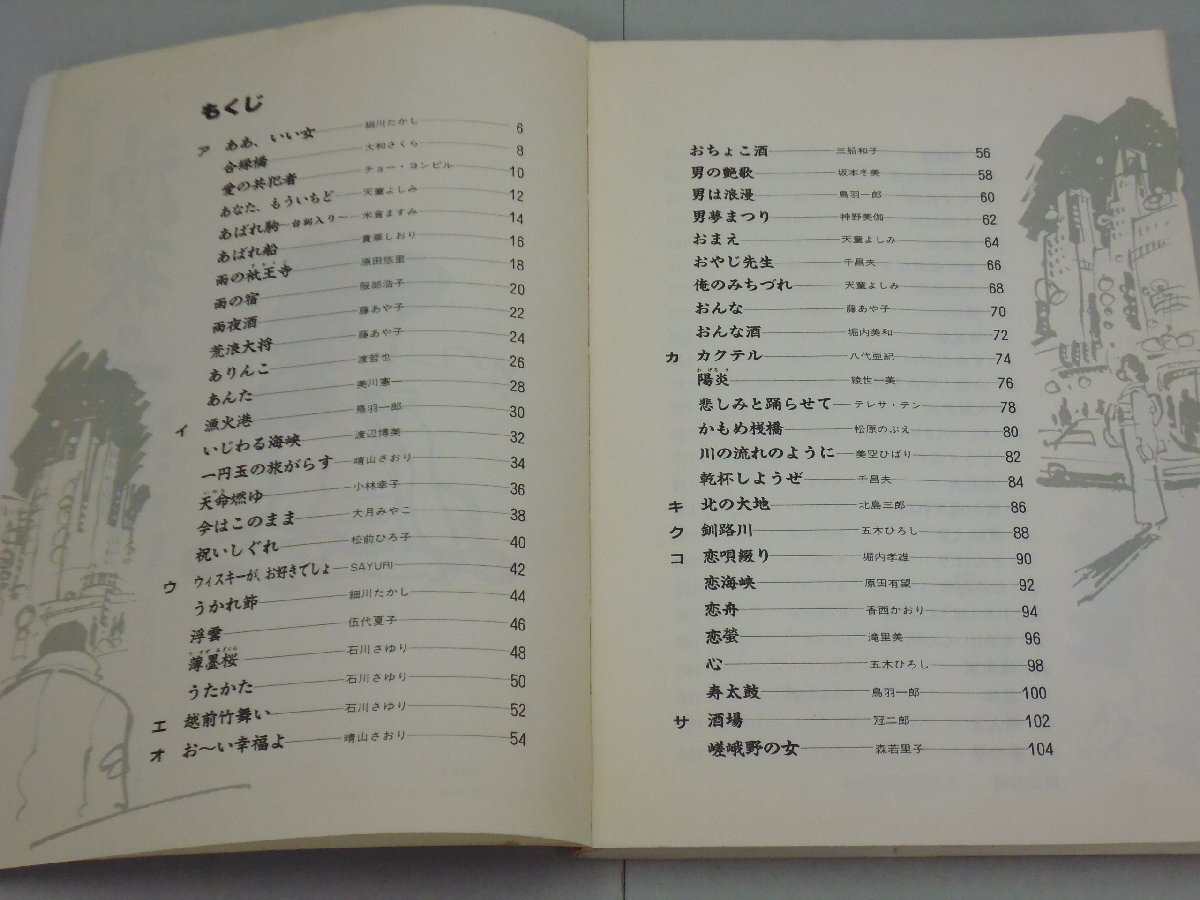 もくじ
ア ああ、いい女 細川たかし 6
合縁橋 大和さくら 8
愛の共犯者 チョー・ヨンピル 10
あなた、もういちど 天童よしみ 12
あばれ駒〜台詞入り〜 米倉ますみ 14
あばれ船 貴華しおり 16
雨の祇王寺 原田悠里 18
雨の宿 服部浩子 20
雨夜酒 藤あや子 22
荒浪大将 藤あや子 24
ありんこ 渡哲也 26
あんた 美川憲一 28
イ 漁火港 鳥羽一郎 30
いじわる海峡 渡辺博美 32
一円玉の旅がらす 晴山さおり 34
天命燃ゆ 小林幸子 36
今はこのまま 大月みやこ 38
祝いしぐれ 松前ひろ子 40
ウ ウィスキーが、お好きでしょ SAYURI 42
うかれ節 細川たかし 44
浮雲 伍代夏子 46
薄墨桜 石川さゆり 48
うたかた 石川さゆり 50
エ 越前竹舞い 石川さゆり 52
オ お〜い幸福よ 晴山さおり 54
おちょこ酒 三船和子 56
男の艶歌 坂本冬美 58
男は浪漫 鳥羽一郎 60
男夢まつり 神野美伽 62
おまえ 天童よしみ 64
おやじ先生 千昌夫 66
俺のみちづれ 天童よしみ 68
おんな 藤あや子 70
おんな酒 堀内美和 72
カ カクテル 八代亜紀 74
かげろう
陽炎 綾世一美 76
悲しみと踊らせて テレサ・テン 78
かもめ桟橋 松原のぶえ 80
川の流れのように 美空ひばり 82
乾杯しようぜ 千昌夫 84
キ 北の大地 北島三郎 86
ク 釧路川 五木ひろし 88
コ 恋唄綴り 堀内孝雄 90
恋海峡 原田有望 92
恋舟 香西かおり 94
恋螢 滝里美 96
心 五木ひろし 98
寿太鼓 鳥羽一郎 100
サ 酒場 冠二郎 102
嵯峨野の女 森若里子 104